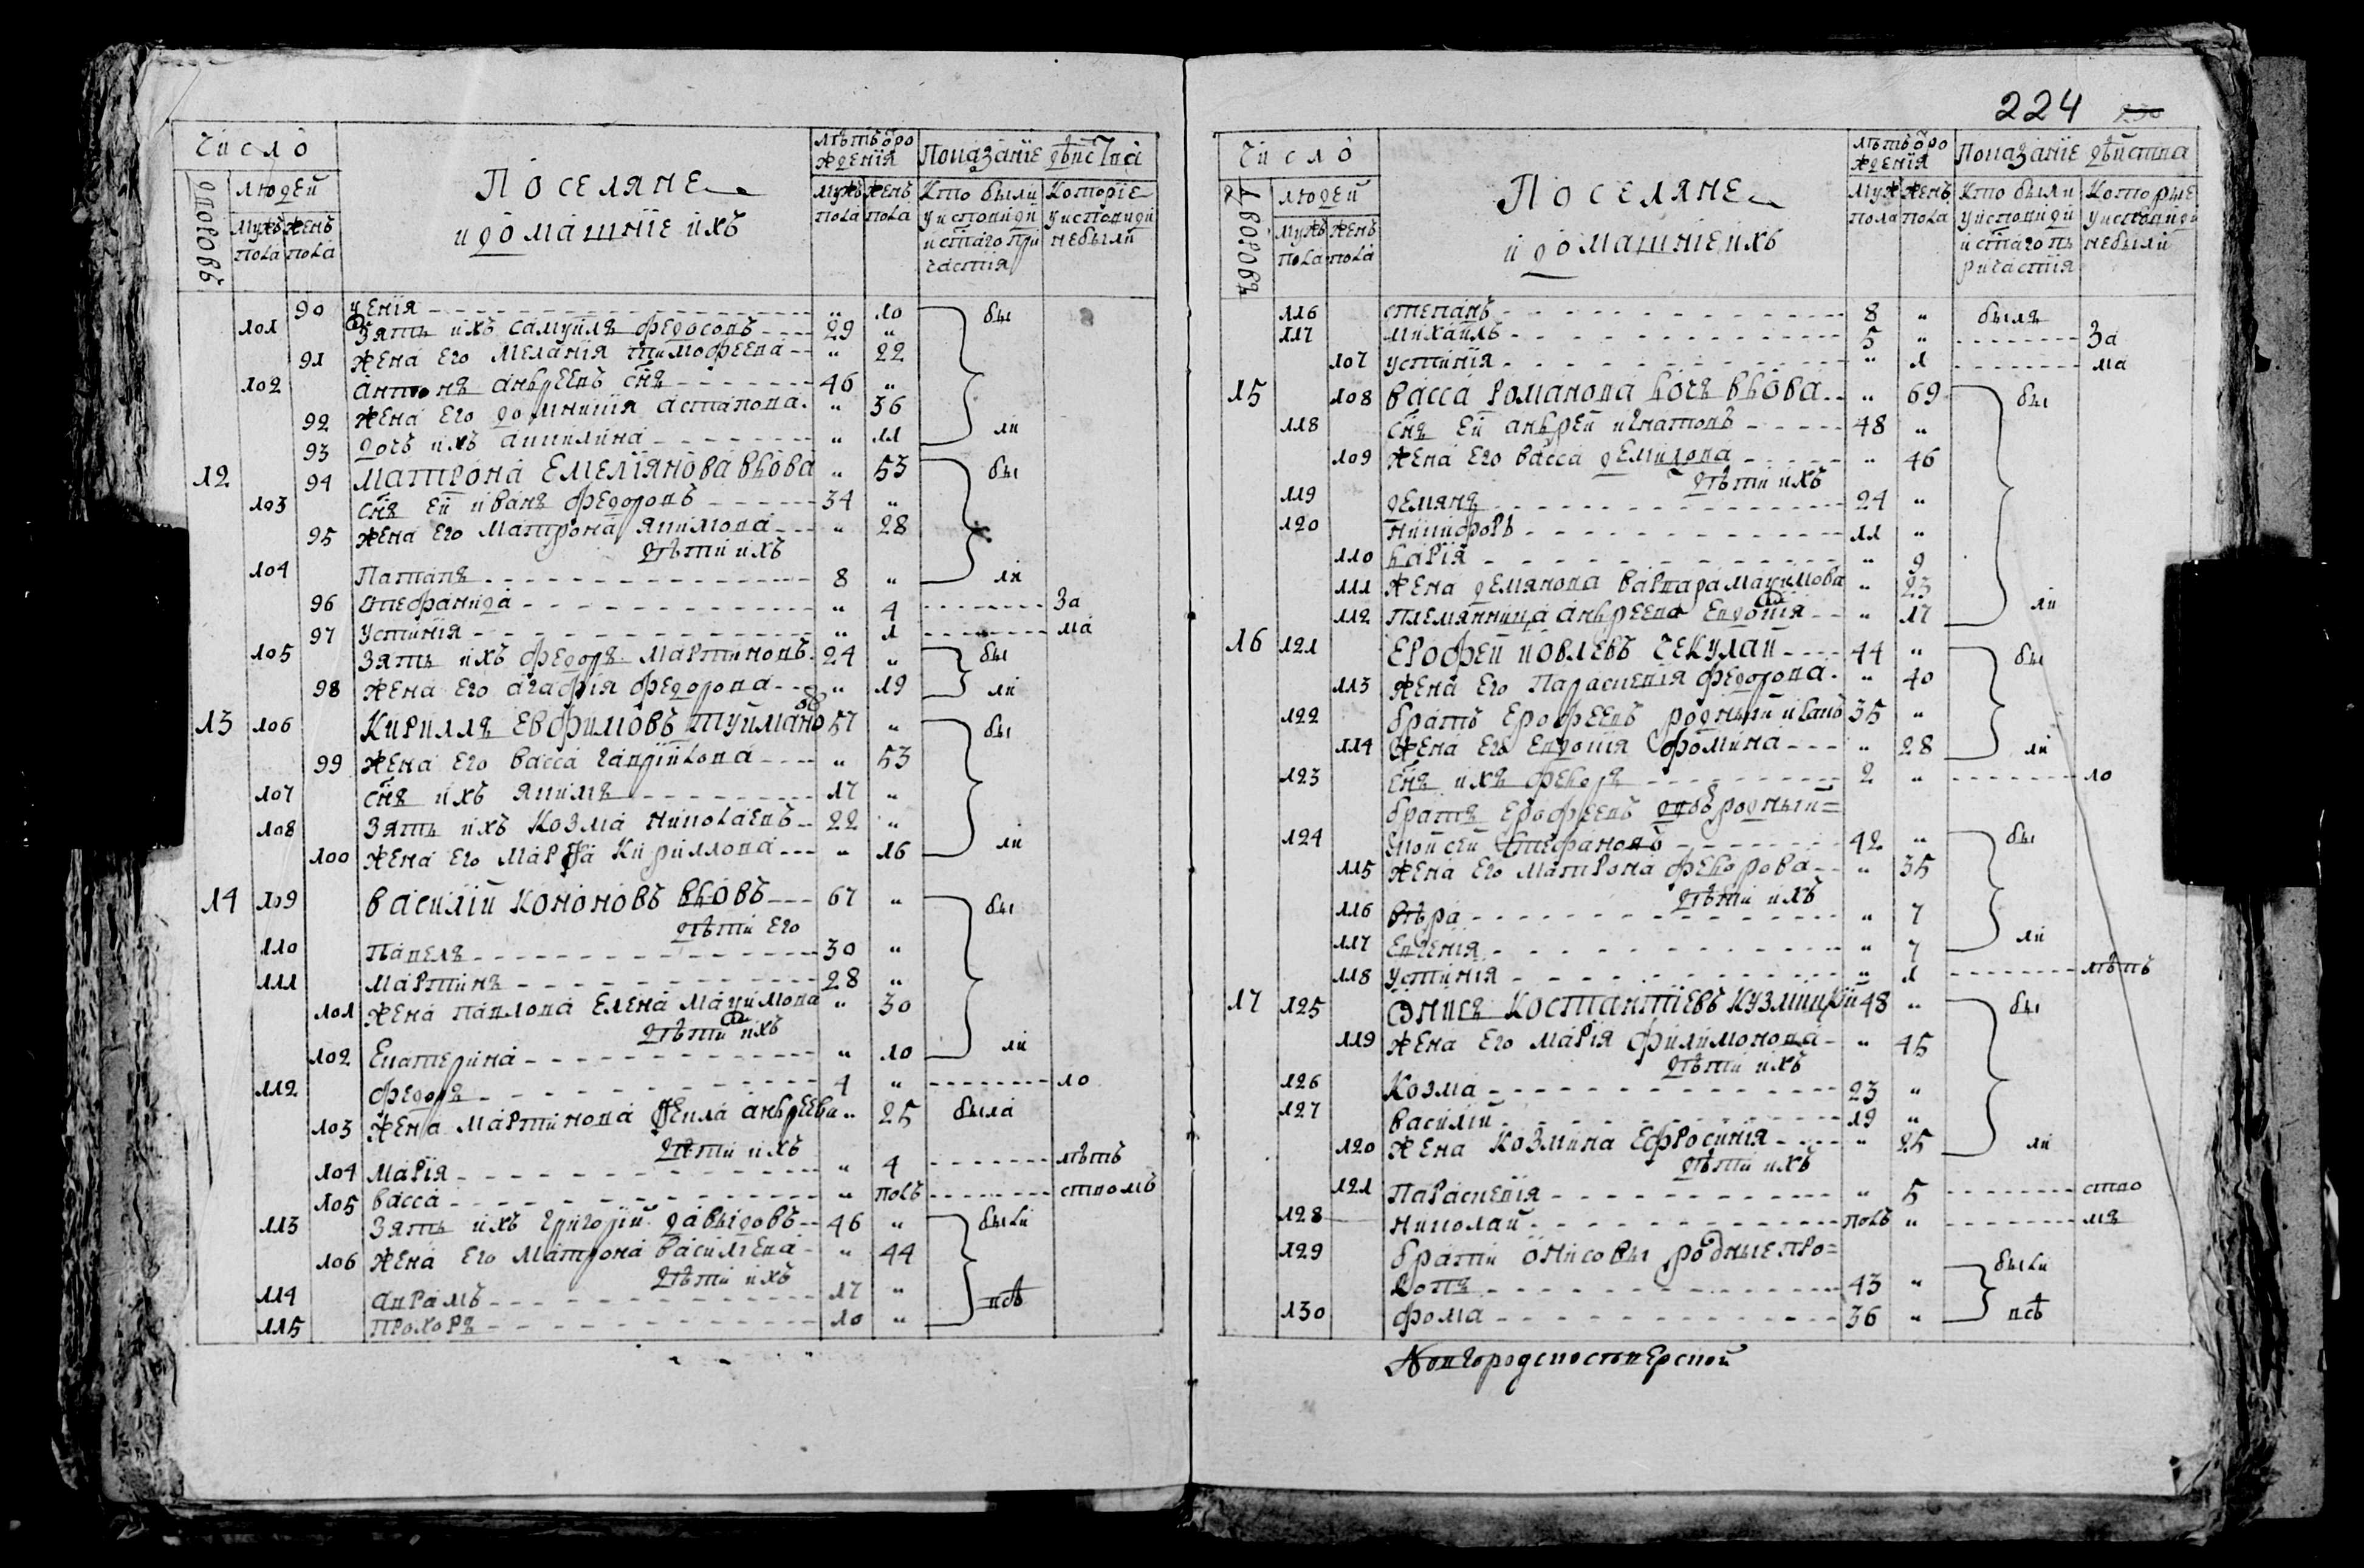 Число
Поселяне
и домашніе ихъ
лѣтъ ѿ ро
жденія
Показаніе дѣйства
дворовъ
людей
мужъ
пола
женъ
пола
мужъ
пола
женъ
пола
Кто были
у исповиди
и стаго при
частія
Которіе
у исповиди
небыли
90 ксенія " 10 бы
101 Зять ихъ самуилъ федосовъ 29 "
91 жена его меланія тимофеева " 22
102 антонъ андреевъ снъ 46 "
92 жена его домникія астапова " 36 ли
93 дочь ихъ акилина " 11
12 94 матрона емеліянова вдова " 53 бы
103 снъ ей иванъ федоровъ 34 "
95 жена его матрона якимова " 28
дѣти ихъ
104 Патапъ 8 " ли
96 стефанида " 4 За
97 устинія " 1 ма
105 зять ихъ федоръ мартиновъ 24 " бы
98 жена его агафія федорова " 19 ли
13 106 Кирилъ евфимовъ туйманов 57 " бы
99 жена его васса " 53
107 снъ ихъ якимъ 17 "
108 зять ихъ козма николаевъ 22 "
100 жена его марфа кириллова " 16 ли
14 109 василій кононовъ вдовъ 67 " бы
дѣти его
110 Павелъ 30 "
111 мартинъ 28 "
101 жена павлова елена мауимова " 30
дѣти ихъ
102 Екатерина " 10 ли
112 федоръ 4 " ло
103 жена мартинова фекла андреева " 25 была
дѣти ихъ
104 марія " 4 лѣтъ
105 васса " полъ ством
113 зять ихъ григорій давыдовъ 46 " были
106 жена его матрона василева " 44
дѣти ихъ
114 аврамъ 17 " всѣ
115 прохоръ 10 "
224
Число
Поселяне
и домашніе ихъ
лѣтъ ѿ ро
жденія
Показаніе дѣйства
дворовъ
людей
мужъ
пола
женъ
пола
муж
пола
женъ
пола
Кто были
у исповиди
и стаго пъ
ричастія
Которые
у исповиди
небыли
116 степанъ 8 " былъ
117 михаилъ 5 " За
107 устинія " 1 ма
15 108 васса романова дочь вдова " 69 бы
118 снъ ей андрей игнатовъ 48 "
109 жена его васса демидова " 46
дѣти ихъ
119 демянъ 24 "
120 никифоръ 11 "
110 дарія " 9
111 жена демянова варвара мауимова " 23
112 племянница андреева евдокія " 17 ли
16 121 ерофей иовлевъ чекулай 44 " бы
113 жена его параскевія федорова " 40
122 братъ ерофеевъ родный иванъ 35 "
114 жена его евдокія фомина " 28 ли
123 снъ ихъ федоръ 2 " ло
братъ ерофеевъ двородный=
124 мойсей стефановъ 42 " бы
115 жена его матрона федорова " 35
дѣти ихъ
116 вѣра " 7
117 евгенія " 7 ли
118 устинія " 1 лѣтъ
17 125 онисъ костантіевъ кузмицкій 48 " бы
119 жена его марія филимонова " 45
дѣти ихъ
126 козма 23 "
127 василій 19 "
120 жена козмина ефросинія " 25 ли
дѣти ихъ
121 параскевія " 5 ство
128 николай полъ " мъ
129 брати онисовы родные про=
копъ 43 " были
130 фома 36 " всѣ
Новгородскосѣверской